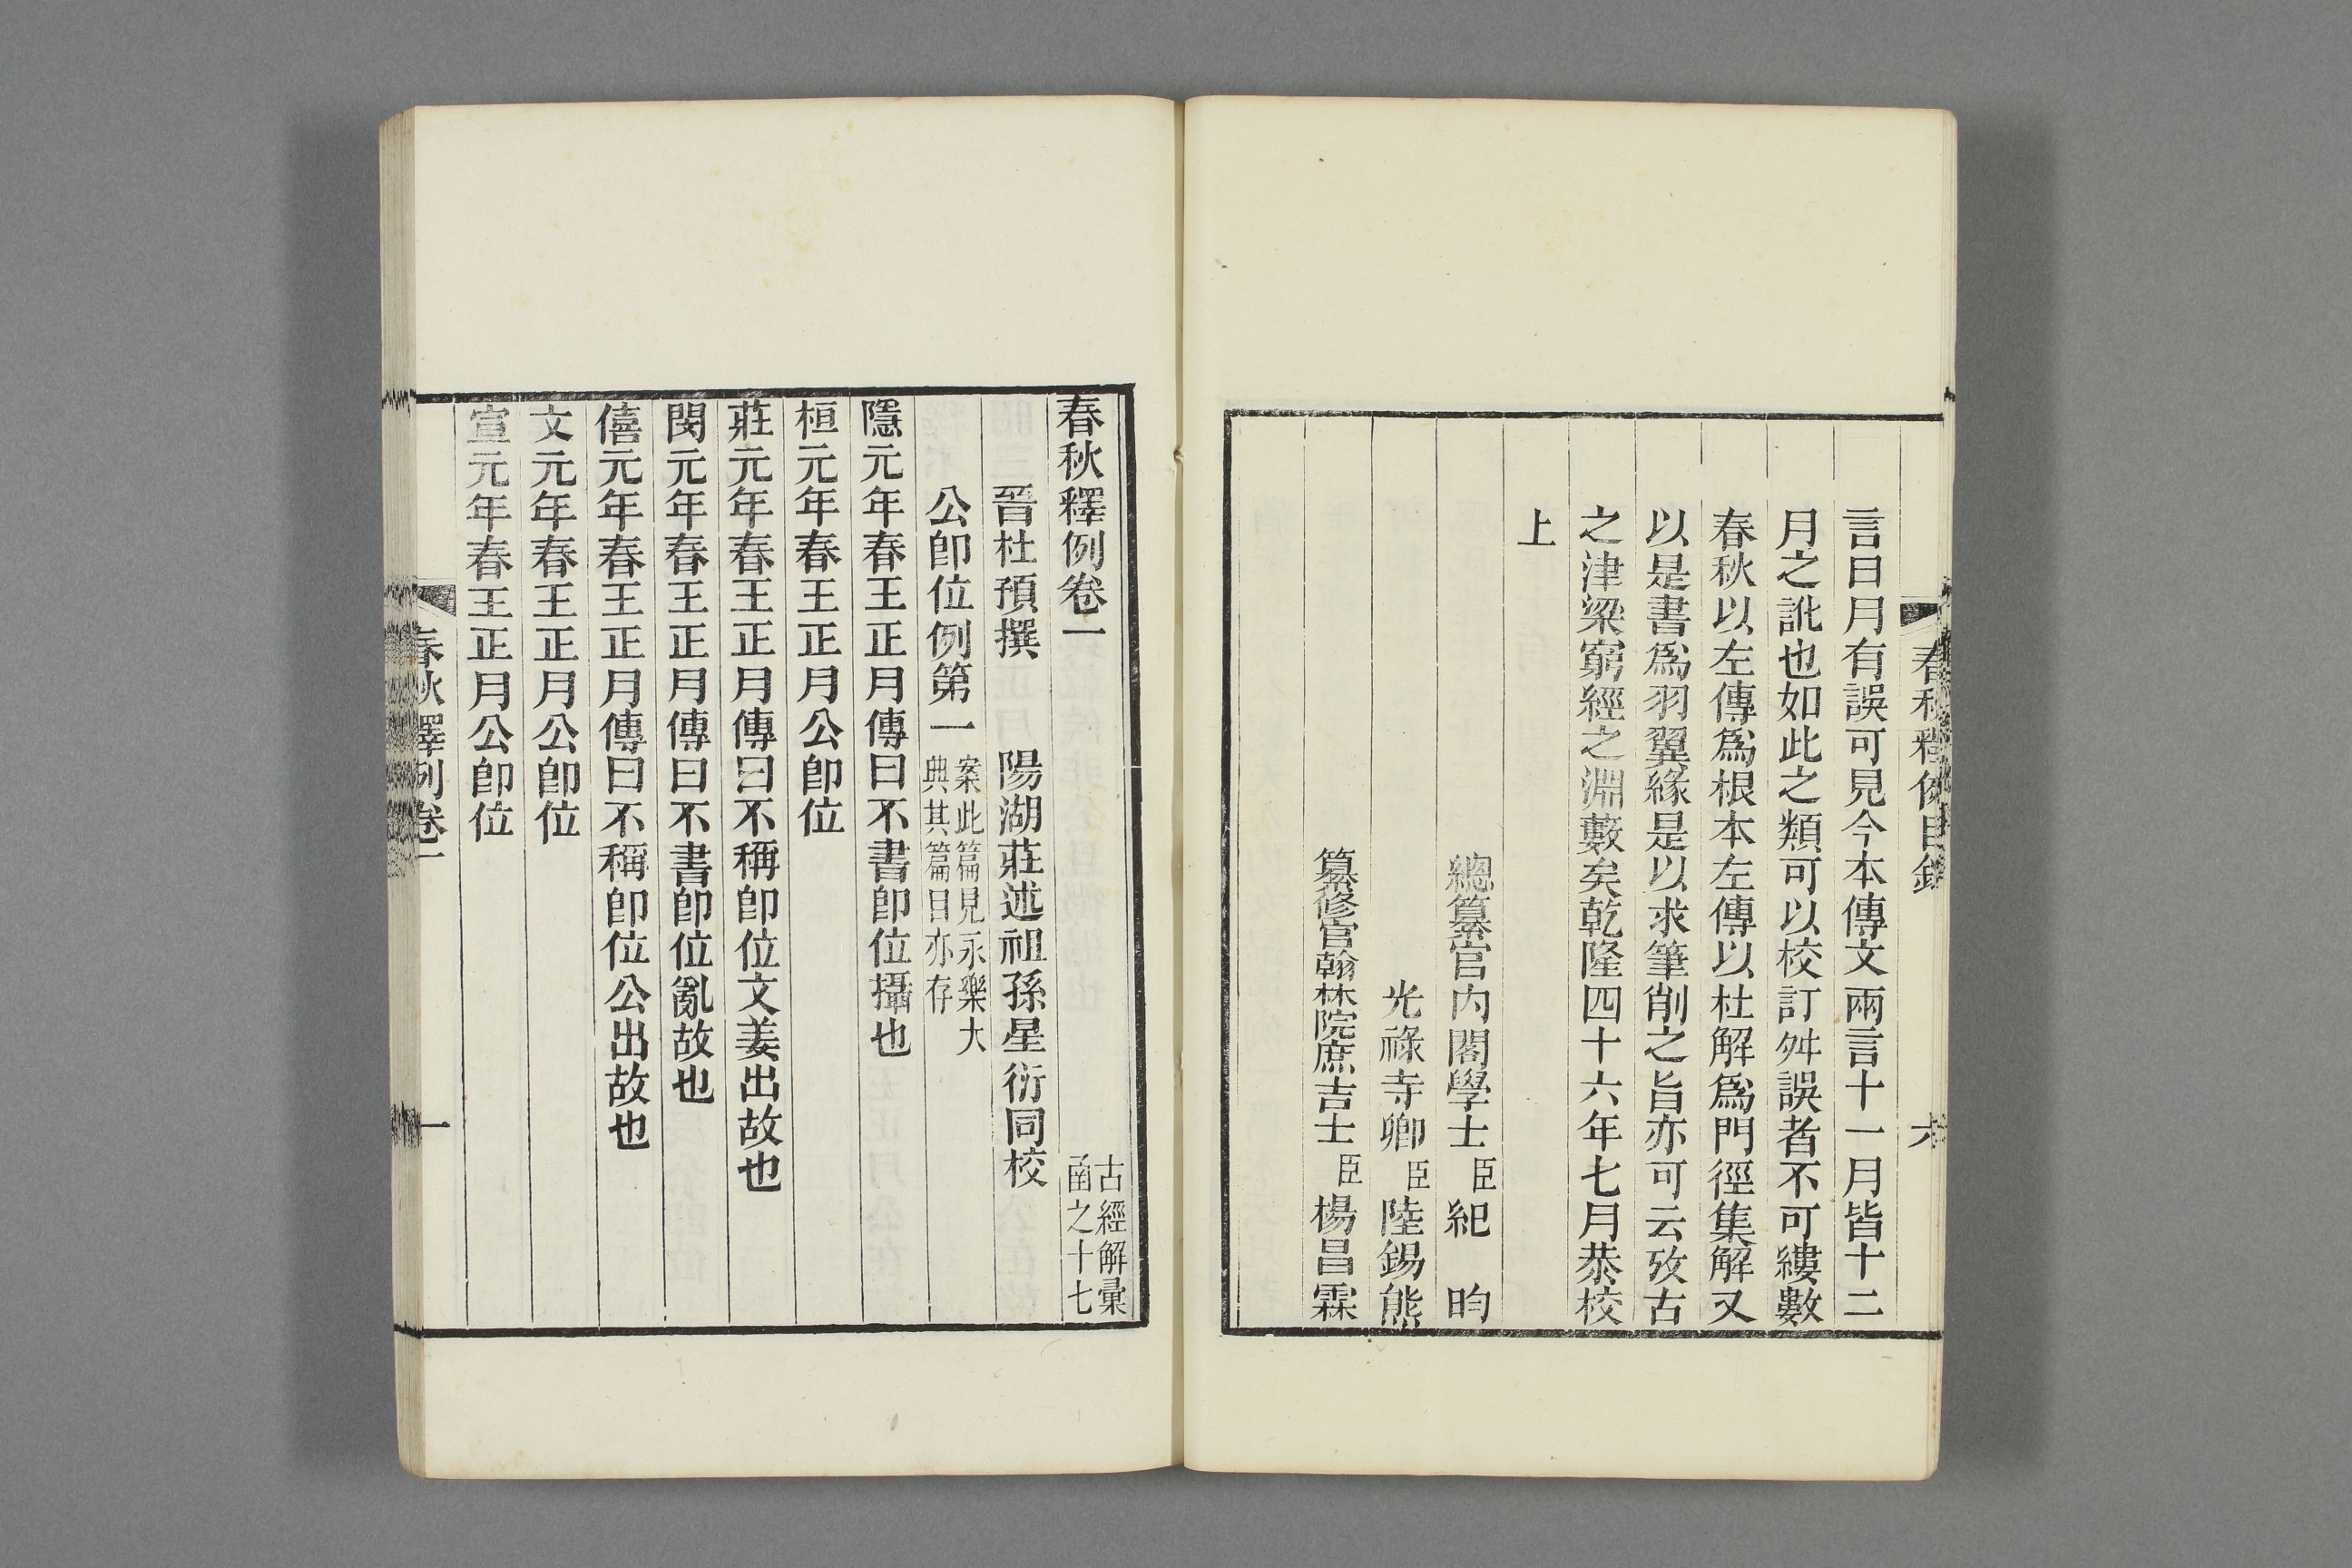 春秋釋例目錄
六
言日月有誤可見今本傳文兩言十一月皆十二
月之訛也如此之類可以校訂舛誤者不可縷數
春秋以左傳爲根本左傳以杜解爲門徑集解又
以是書爲羽翼緣是以求筆削之旨亦可云攷古
之津梁窮經之淵藪矣乾隆四十六年七月恭校
上
總纂官內閣學士臣紀　昀
光祿寺卿臣陸錫熊
纂修官翰林院庶吉士臣楊昌霖
春秋釋例卷一
古經解彙
函之十七
晉杜預撰　陽湖莊述祖孫星衍同校
公卽位例第一
案此篇見永樂大
典其篇目亦存
隱元年春王正月傳曰不書卽位攝也
桓元年春王正月公卽位
莊元年春王正月傳曰不稱卽位文姜出故也
閔元年春王正月傳曰不書卽位亂故也
僖元年春王正月傳曰不稱卽位公出故也
文元年春王正月公卽位
宣元年春王正月公卽位
春秋釋例卷一
一